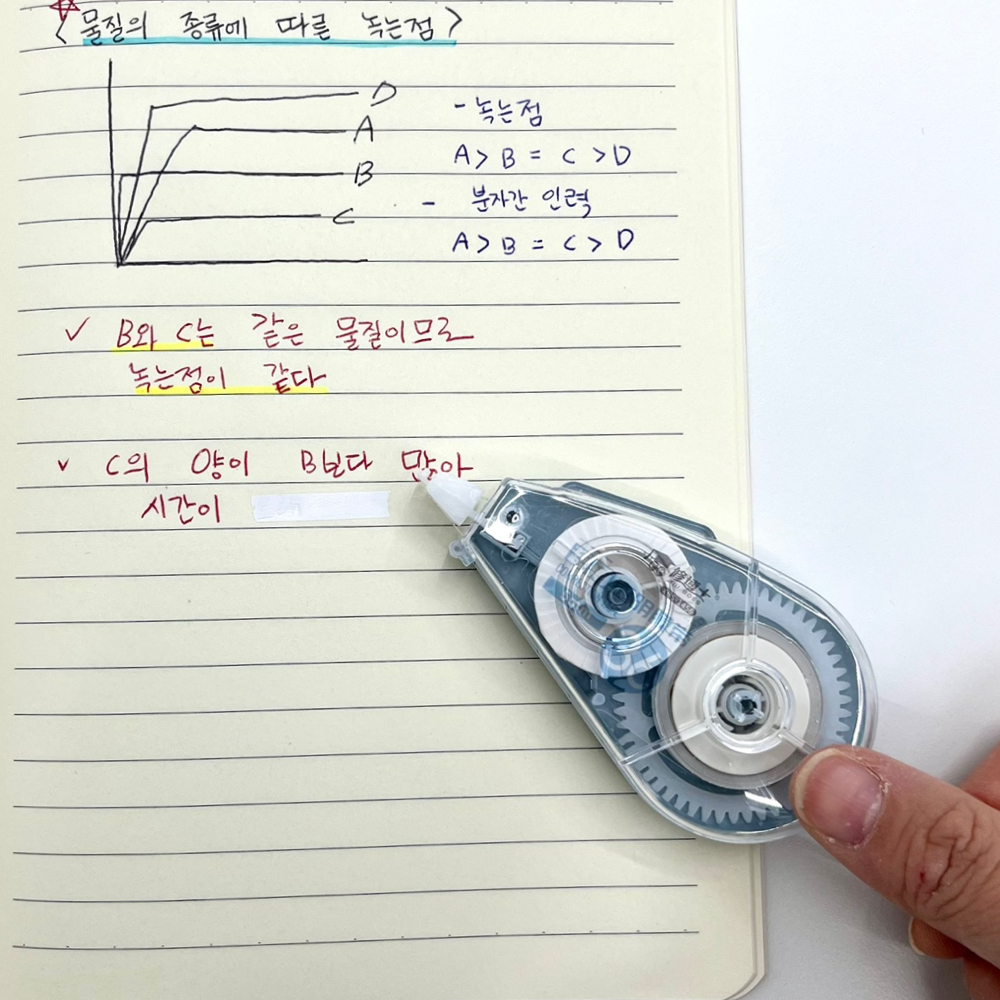 <물질의 종류에 따른 녹는점>
D
A
B
C
- 녹는점
A > B = C > D
- 분자간 인력
A > B = C > D
✓ B와 C는 같은 물질이므로
녹는점이 같다
✓ C의 양이 B보다 많아
시간이